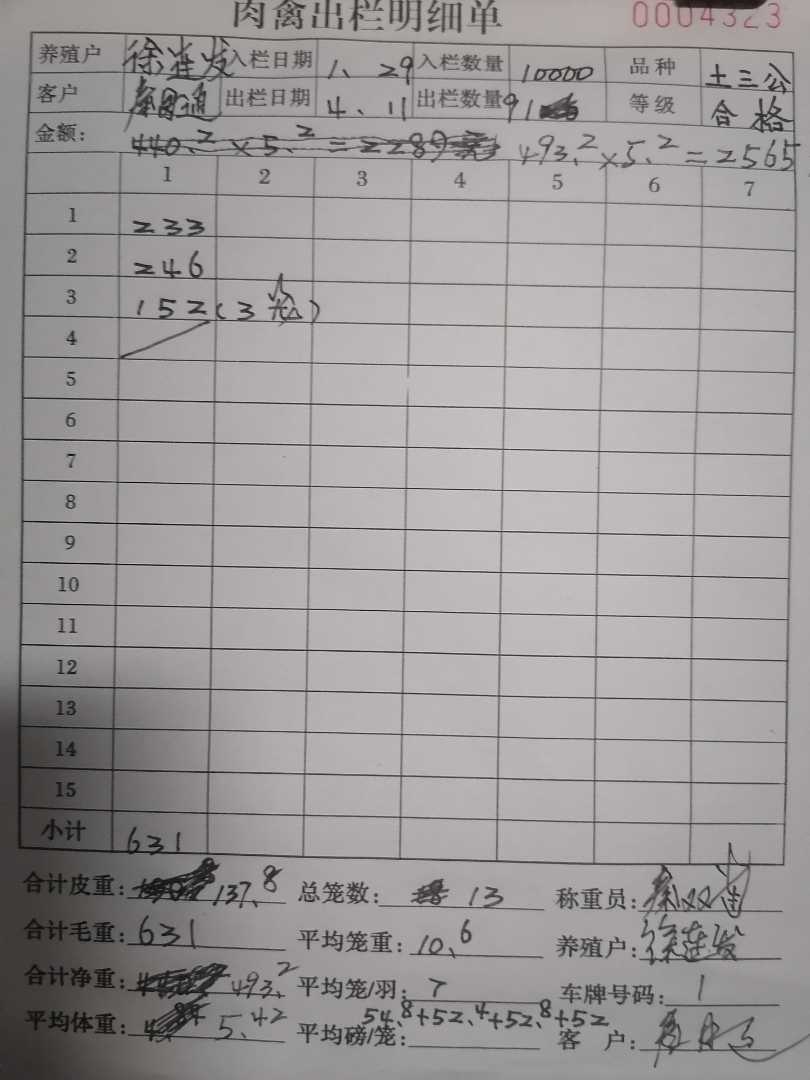 肉禽出栏明细单 0004323
养殖户 徐连发 入栏日期 1、29 入栏数量 10000 品种 土三公
客户 出栏日期 4、11 出栏数量 91 等级 合格
金额: 440.2×5.2=2289 493.2×5.2=2565
1 2 3 4 5 6 7
1 233
2 246
3 152(3笼)
4
5
6
7
8
9
10
11
12
13
14
15
小计 631
合计皮重: 137.8 总笼数: 13 称重员:
合计毛重: 631 平均笼重: 10.6 养殖户: 徐连发
合计净重: 493.2 平均笼/羽: 7 车牌号码: 1
平均体重: 5.42 平均磅/笼: 54.8+52.4+52.8+52 客户: